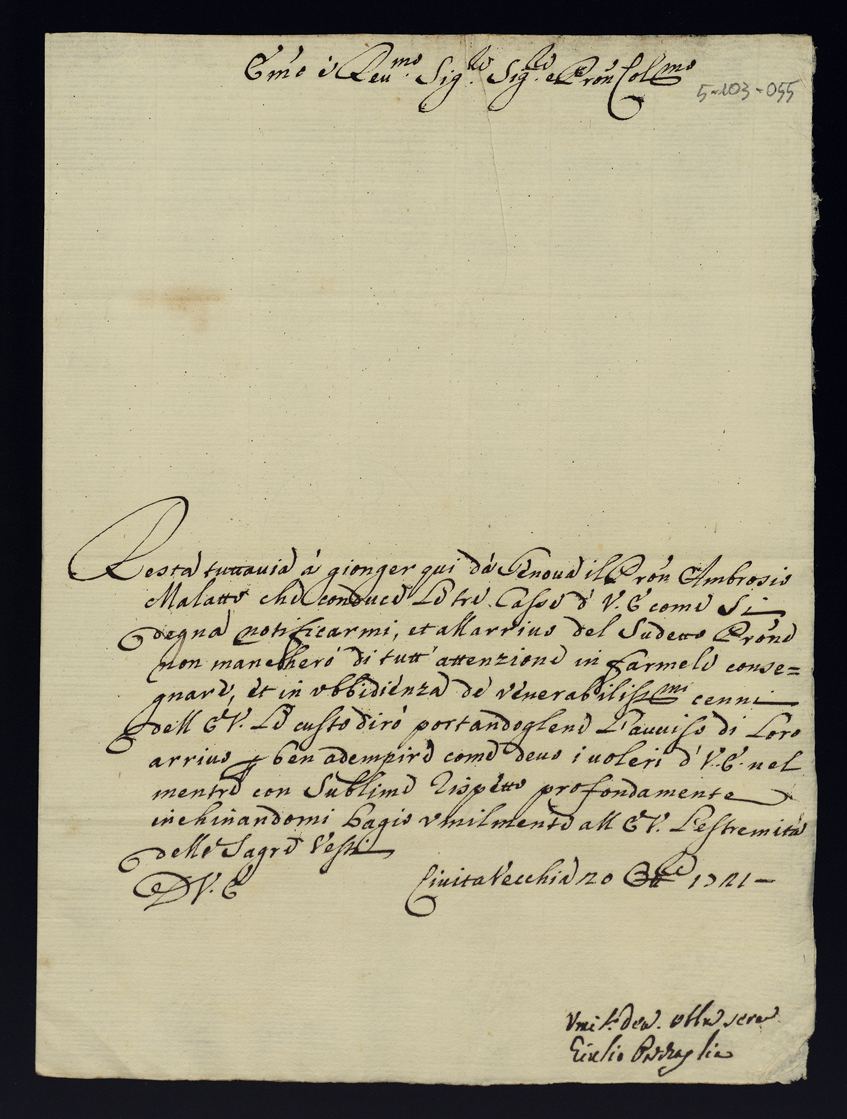 Em̃o è Reu.mo Sig.re Sig.re e Pròn Col.mo
5-103-055
Resta tuttauia á gionger qui dà Genoua il Pròn Ambrosio
Malatto che conduce Le tre Casse d' V. E come Si
degna notificarmi, et all arriuo del Sudetto Pròne
non mancherò di tutt' attenzione in farmele conse=
gnare, et in vbbidienza de venerabiliss.mi cenni
dell EV. Le custodirò portandoglene L'auuiso di Loro
arriuo p ben adempire come deuo i uoleri d' V. E. nel
mentre con Sublime rispetto profondamente
inchinandomi bagio vmilmente all EV. L'estremità
delle Sagre Vesti
D V. E
Ciuita Vecchia 20 1721 -
Vmil. deu. obb. sere
Giulio